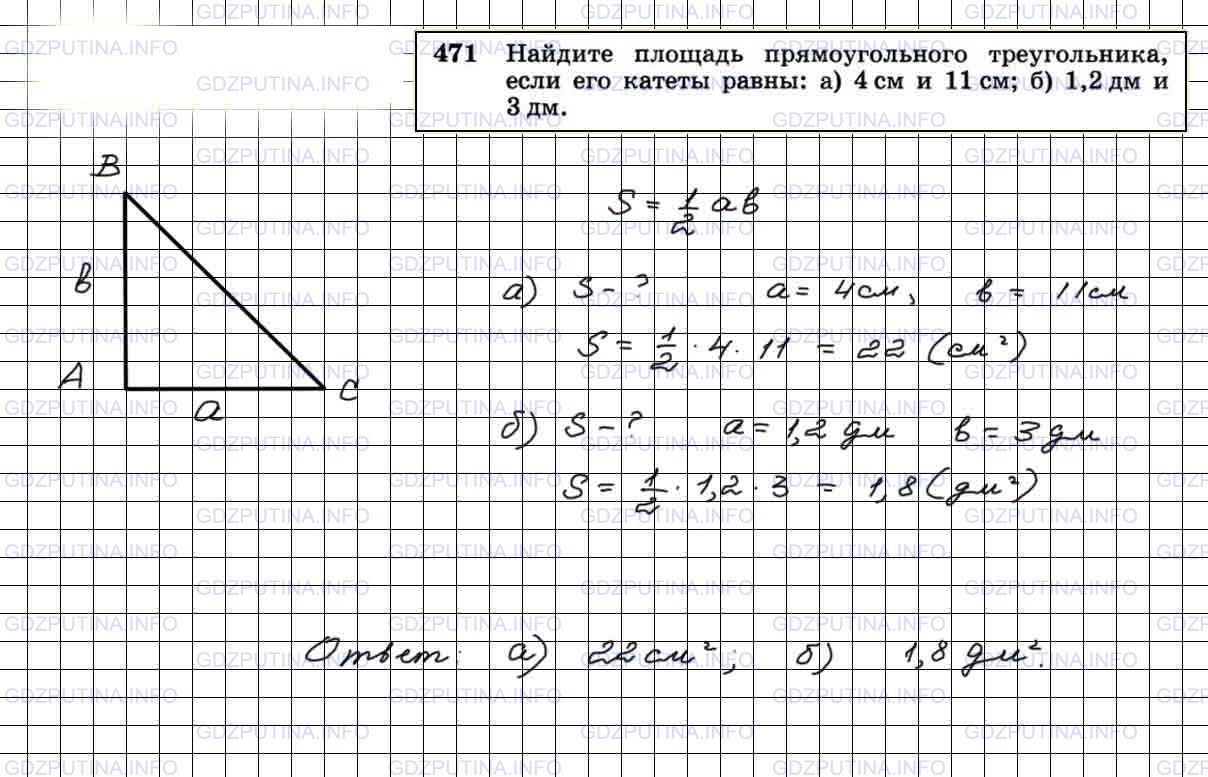 471 Найдите площадь прямоугольного треугольника,
если его катеты равны: а) 4 см и 11 см; б) 1,2 дм и
3 дм.
B
в
A
a
C
S = 1/2 aв
а) S - ? a = 4см, в = 11см
S = 1/2 · 4 · 11 = 22 (см²)
б) S - ? a = 1,2 дм в = 3 дм
S = 1/2 · 1,2 · 3 = 1,8 (дм²)
Ответ: а) 22 см²; б) 1,8 дм².
GDZPUTINA.INFO